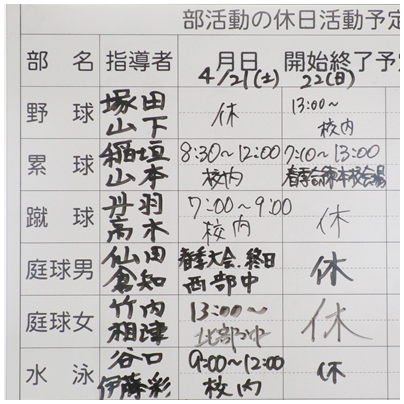 部活動の休日活動予定
部名 指導者 月日 開始終了予定
4/21(土) 22(日)
野球 塚田 山下 休 13:00~ 校内
塁球 稲垣 山本 8:30~12:00 校内 7:10~13:00
蹴球 丹羽 高木 7:00~9:00 校内 休
庭球男 仙田 倉知 春季大会.終日 西部中 休
庭球女 竹内 相津 13:00~ 北部中 休
水泳 谷口 伊藤彩 9:00~12:00 校内 休